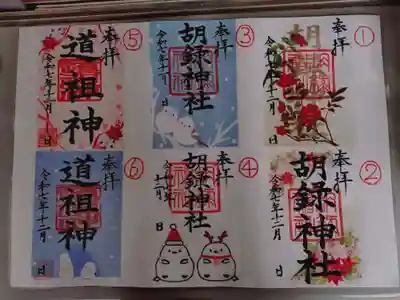 ①
奉拝
胡録神社
令和七年十一月 日
②
奉拝
胡録神社
令和七年十二月 日
③
奉拝
胡録神社
令和七年十二月 日
④
奉拝
胡録神社
令和七年十二月 日
⑤
奉拝
道祖神
令和七年十一月 日
⑥
奉拝
道祖神
令和七年十二月 日